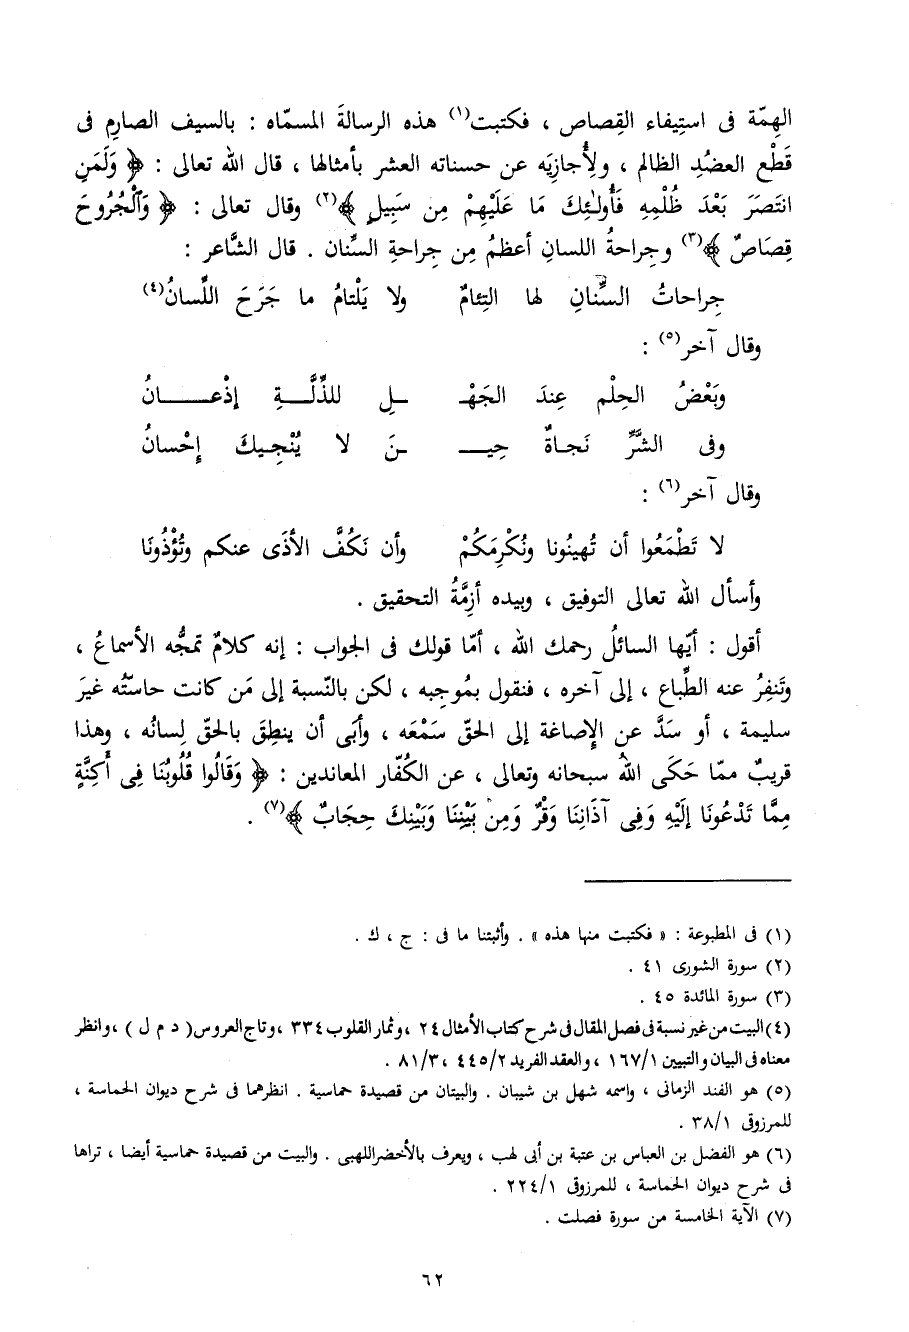 الهِمّة فى استِيفاء القِصاص ، فكتبت(١) هذه الرسالةَ المسمّاه : بالسيف الصارِم فى
قَطْع العضُدِ الظالم ، ولِأُجازِيَه عن حسناته العشر بأمثالها ، قال الله تعالى : ﴿ وَلَمَنِ
انتَصَرَ بَعْدَ ظُلْمِهِ فَأُولَٰئِكَ مَا عَلَيْهِمْ مِن سَبِيلٍ ﴾(٢) وقال تعالى : ﴿ وَٱلْجُرُوحَ
قِصَاصٌ ﴾(٣) وجراحةُ اللسانِ أعظمُ مِن جراحةِ السِّنان . قال الشَّاعر :
جِراحاتُ السِّنَانِ لها التِئامٌ ولا يَلْتامُ ما جَرَحَ اللِّسانُ(٤)
وقال آخر(٥) :
وبَعْضُ الحِلْمِ عِندَ الجَهْـ ـلِ للذِّلَّـــةِ إذْعــــانُ
وفى الشَّرِّ نَجاةٌ حِيـــ ـنَ لا يُنْجِيكَ إحْسانُ
وقال آخر(٦) :
لا تَطْمَعُوا أن تُهِينُونا ونُكْرِمَكُمْ وأن نَكُفَّ الأذَى عنكم وتُؤْذُونَا
وأسأل الله تعالى التوفيق ، وبيده أزِمَّةُ التحقيق .
أقول : أيّها السائلُ رحمك الله ، أمّا قولك فى الجواب : إنه كلامٌ تمجُّه الأسماعُ ،
وتَنفِرُ عنه الطِّباع ، إلى آخره ، فنقول بمُوجِبه ، لكن بالنّسبة إلى مَن كانت حاستّه غيرَ
سليمة ، أو سَدَّ عن الإصاغة إلى الحقّ سَمْعَه ، وأبَى أن ينطِقَ بالحقّ لِسانُه ، وهذا
قريبٌ ممّا حَكَى اللهُ سبحانه وتعالى ، عن الكُفّار المعاندين : ﴿ وَقَالُوا قُلُوبُنَا فِى أَكِنَّةٍ
مِمَّا تَدْعُونَا إِلَيْهِ وَفِى آذَانِنَا وَقْرٌ وَمِنْ بَيْنِنَا وَبَيْنِكَ حِجَابٌ ﴾(٧) .
(١) فى المطبوعة : « فكتبت منها هذه » . وأثبتنا ما فى : ج ، ك .
(٢) سورة الشورى ٤١ .
(٣) سورة المائدة ٤٥ .
(٤) البيت من غير نسبة فى فصل المقال فى شرح كتاب الأمثال ٢٤ ، وثمار القلوب ٣٣٤ ، وتاج العروس ( د م ل ) ، وانظر
معناه فى البيان والتبيين ١٦٧/١ ، والعقد الفريد ٤٤٥/٢ ، ٨١/٣ .
(٥) هو الفند الزمانى ، واسمه شهل بن شيبان . والبيتان من قصيدة حماسية . انظرهما فى شرح ديوان الحماسة ،
للمرزوقى ٣٨/١ .
(٦) هو الفضل بن العباس بن عتبة بن أبى لهب ، ويعرف بالأخضر اللهبى . والبيت من قصيدة حماسية أيضا ، تراها
فى شرح ديوان الحماسة ، للمرزوقى ٢٢٤/١ .
(٧) الآية الخامسة من سورة فصلت .
٦٢